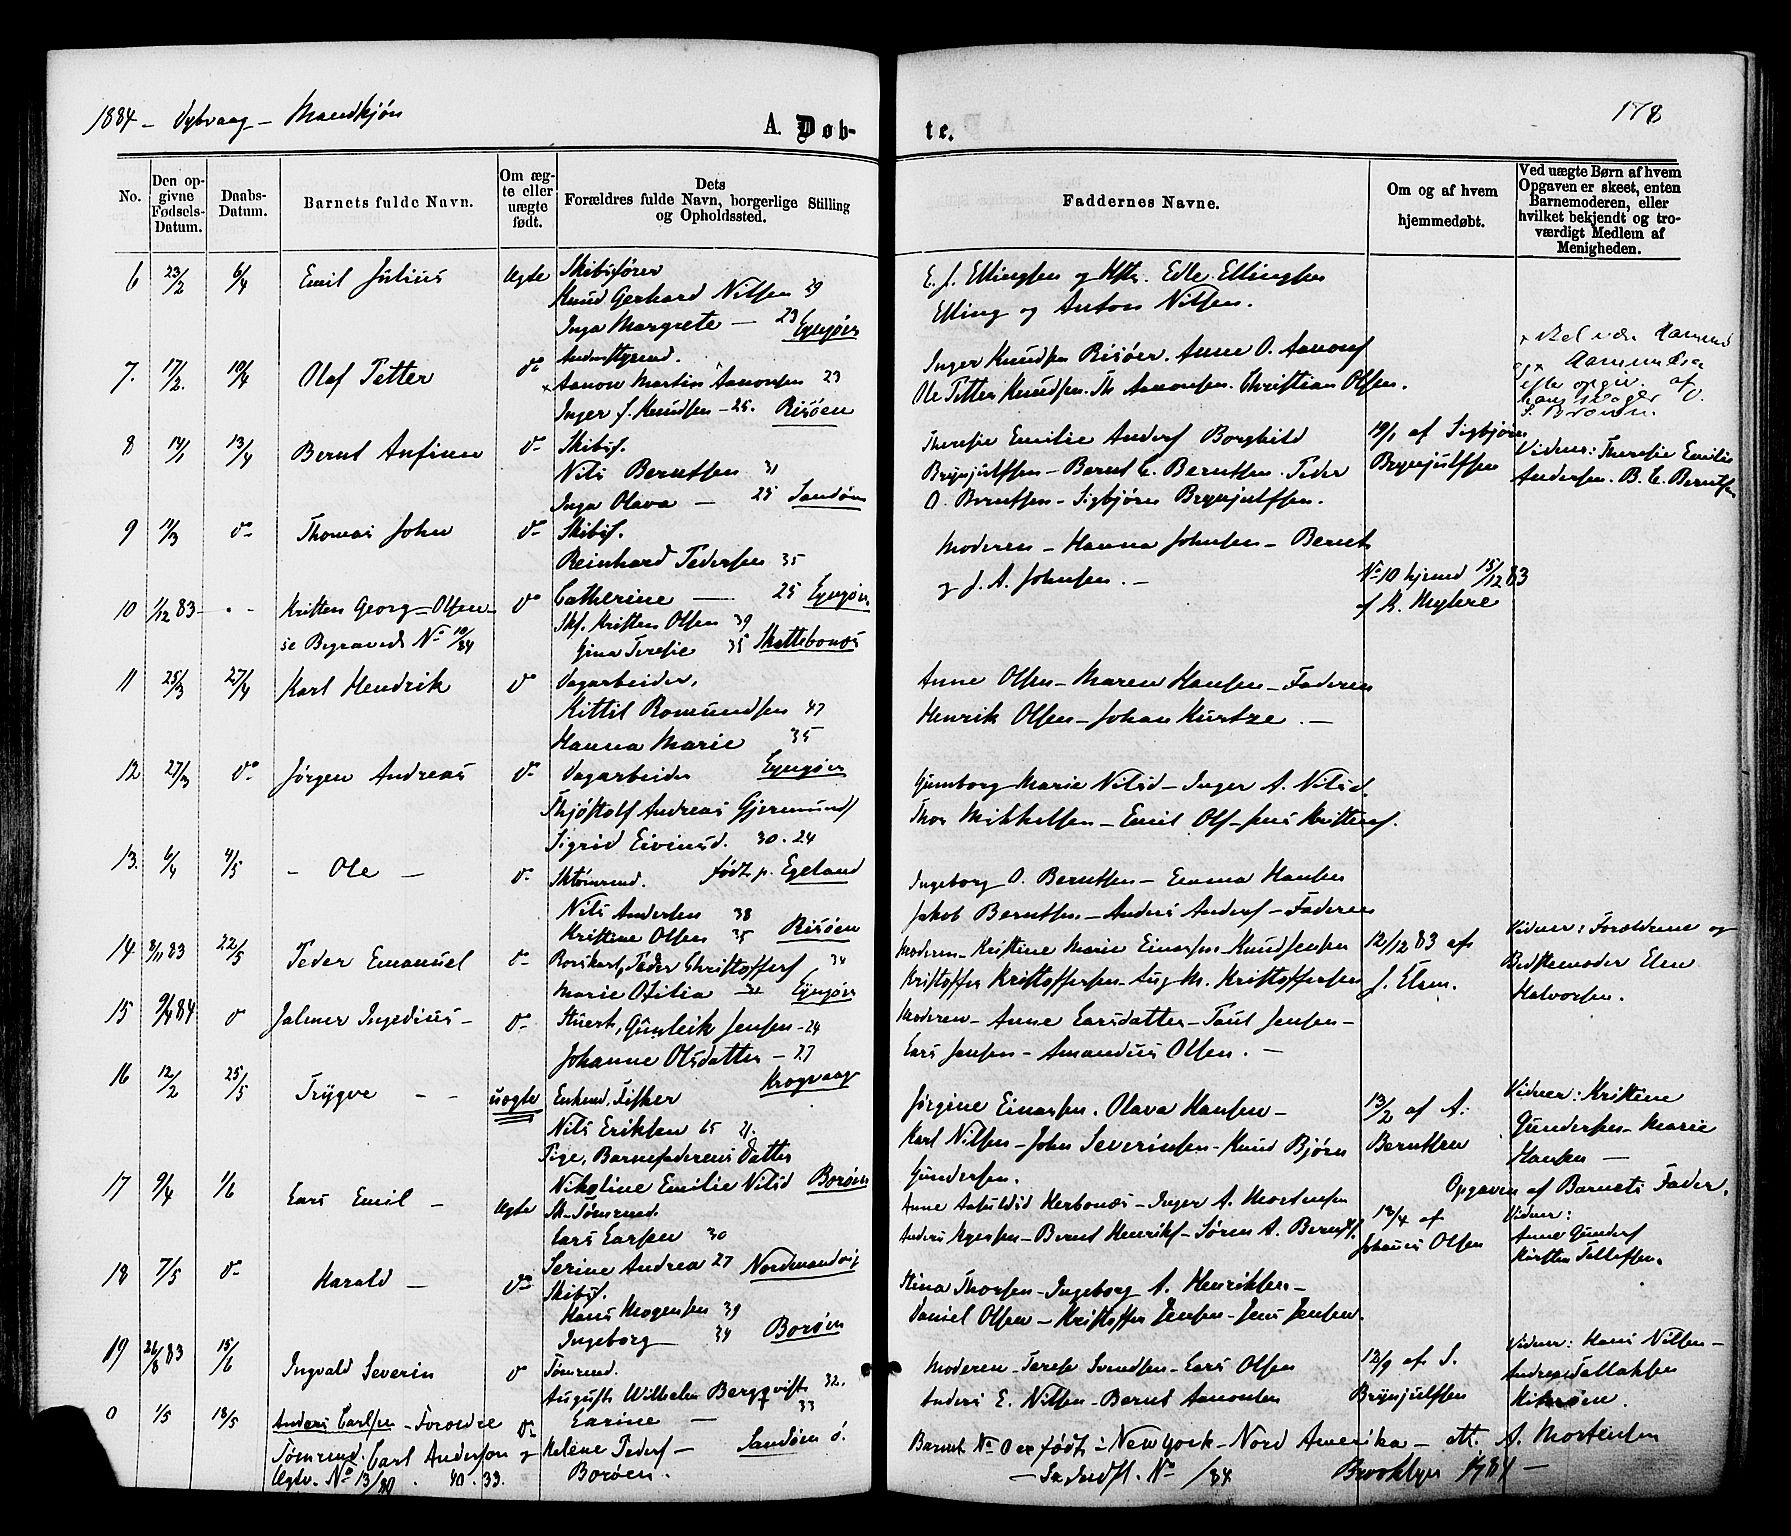 1884 - Dybvaag - Mandkjøn
178
A. Døb-
te.
No.
Den op-
givne
Fødsels-
Datum.
Daabs-
Datum.
Barnets fulde Navn.
Om æg-
te eller
uægte
født.
Dets
Forældres fulde Navn, borgerlige Stilling
og Opholdssted.
Faddernes Navne.
Om og af hvem
hjemmedøbt.
Ved uægte Børn af hvem
Opgaven er skeet, enten
Barnemoderen, eller
hvilket bekjendt og tro-
værdigt Medlem af
Menigheden.
6 23/2 6/4 Emil Julius Ægte Skibsfører
Knud Gerhard Nilsen 29
Inga Margrete - 23 Gjengøer
E. J. Ellingsen og Edle Ellingsen
Elling og Anton Nilsen.
7. 17/2. 10/4 Olaf Petter do
Aanon Martin Aanonsen 23
Inger J. Knudsen - 25. Risøen
Inger Knudsen Risøer. Anne O. Aanons
Ole Petter Knudsen. Th Aanonsen. Christian Olsen.
efter opgiv. af
hans svoger
8 14/1 13/4 Bernt Anfinn do Skibsf.
Nils Berntsen 31
Inga Olava - 25 Sandøen
Theresie Emilie Anders Borghild
Brynjulfsen - Bernt C. Berntsen. Peder
O. Berntsen - Sigbjørn Brynjulfsen.
19/1 af Sigbjørn
Brynjulfsen
Vidner: Theresie Emilie
Andersen. B. C. Berntsen
9 11/3 do Thomas John do Skibsf.
Reinhard Pedersen 35
Cathrine - 25 Gjengøer
Moderen - Hanna Johnsen - Bernt
og J. A. Johnsen. -
10 1/12 83 - - Kristen Georg - Olsen - do
se Begravede No 10/84
Skf. Kristen Olsen 39
Gina Teresie 35 Skottebonæs
No 10 hjemd 15/12 83
af K. Myhre
11 25/3 27/4 Karl Hendrik do Dagarbeider,
Kittil Romundsen 47
Hanna Marie 35
Gjengøer
Anne Olsen - Maren Hansen - Faderen
Henrik Olsen - Johan Kurtze. -
12 27/3 do Jørgen Andreas do Dagarbeider
Thjøstolf Andreas Gjermunds
Sigrid Eivinsd. 30. 24
født p. Egeland
Gunborg Marie Nilsd - Inger A. Nilsd.
Thor Mikkelsen - Emil Ols - Jens Kristens.
13. 6/4 4/5 - Ole - do Sktømrmd.
Nils Andersen 38
Kristine Olsen 35 Risøen
Ingeborg O. Berntsen - Emma Hansen
Jakob Berntsen - Anders Anders - Faderen
14 8/11 83 22/5 Peder Emanuel do Peder Christoffers 34
Marie Otilia 32 Gjengøer
Moderen - Kristine Marie Einarsen - Knud Jensen
Kristoffer Kristoffersen - Aug M. Kristoffersen
12/12 83 af
J. Elsen.
Vidner: Forældrene og
Bedstemoder Elen
Halvorsen.
15 9/4 84 do Jalmer Ingedius - do Stuert, Gunleik Jensen - 24
Johanne Olsdatter - 27
Krogvaag
Moderen - Anne Larsdatter - Paul Jensen -
Lars Jensen - Amandus Olsen. -
16 12/2 25/5 Trygve - - uægte Enkemd, Fisker
Nils Eriksen 65 21.
Pige, Barnefaderens Datter
Nikoline Emilie Nilsd Borøen
Jørgine Einarsen. Olava Hansen -
Karl Nilsen - John Severinsen - Knud Bjørn
Gundersen.
13/2 af A.
Berntsen
Vidner: Kristine
Gundersen - Marie
Hansen -
Opgaven af Barnets Fader.
17 9/4 1/6 Lars Emil - Ægte Sk-Tømrmd.
Lars Larsen 30
Serine Andrea 27 Nordmandvig
Anne Aasulvsd Herbonæs - Inger A. Mortensen
Anders Agesen - Bernt Henriks - Søren A. Bernts.
13/4 af
Johanes Olsen
Vidner:
Anne Gunders
Kirsten Tellefsen.
18 7/5 do Harald - do Skibsf.
Hans Mogensen 39
Ingeborg - 34 Borøen
Stina Thorsen - Ingeborg A. Henriksen -
Daniel Olsen - Kristoffer Jensen - Jens Jensen.
19 26/8 83 15/6 Ingvald Severin do Tømrmd.
August Wilhelm Bergqvist 32.
Larine - 33
Sandøen ø.
Moderen - Terese Svendsen - Lars Olsen
Anders E. Nilsen - Bernt Aanonsen
12/9 af S.
Brynjulfsen
Vidner: Hans Nilsen -
Andreas Tallaksen
0 1/5 18/5 Anders Carlsen - Forældre do
Tømrmd. Carl Anderson og Helene Peders -
Ægte. No 13/80. 40. 33. Borøen.
Barnet No 0 er født i New York - Nord Amerika - att. A. Mortensen
No /84 Brooklyn